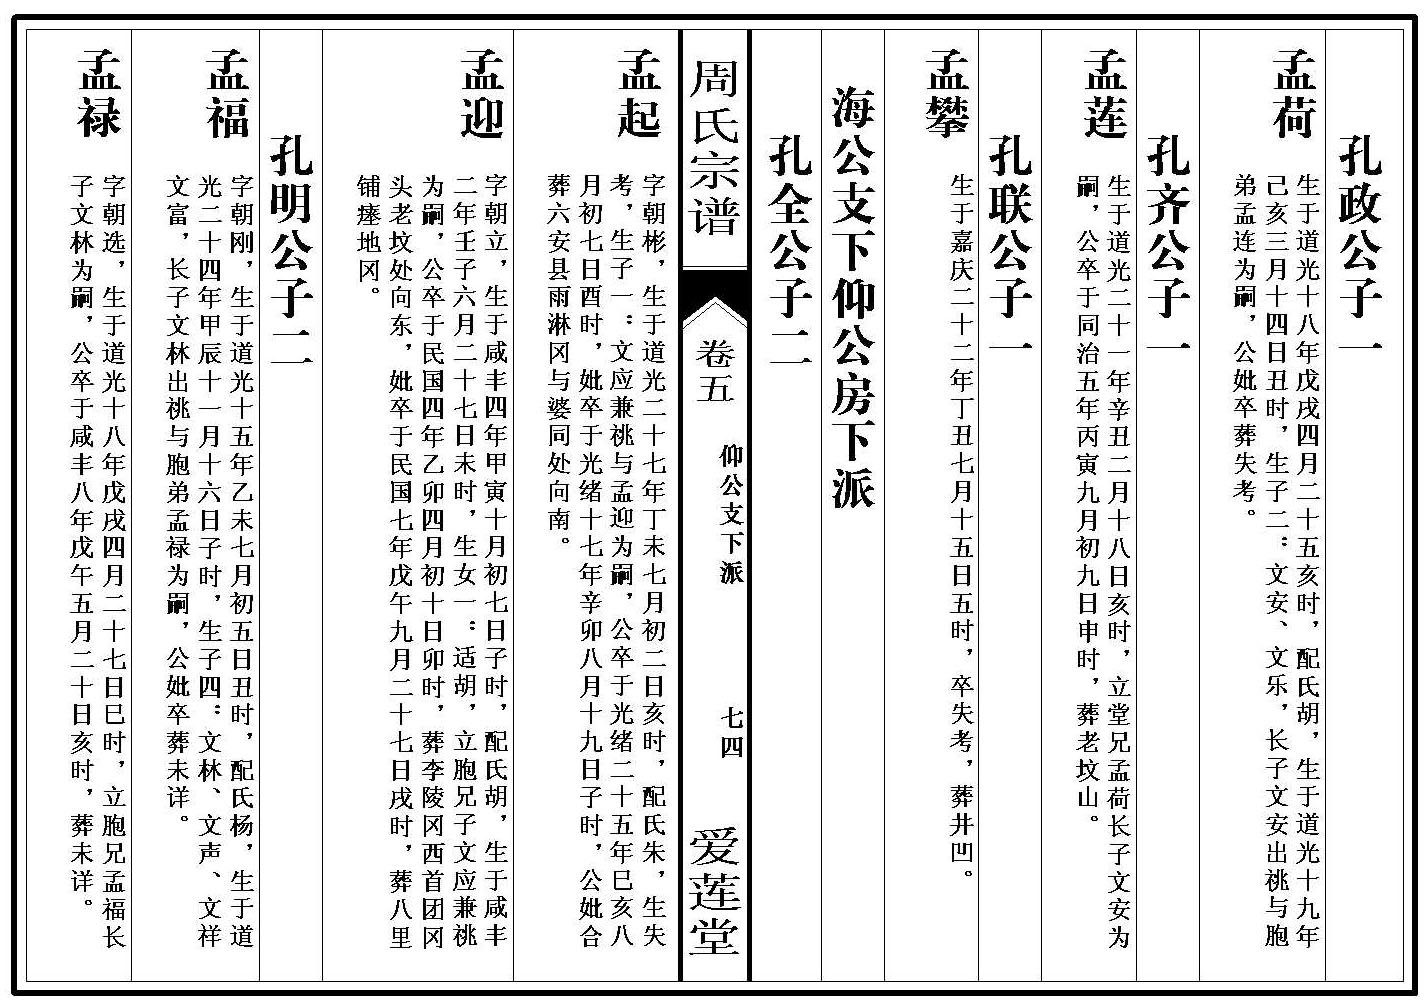 孔政公子一
孟荷
生于道光十八年戊戌四月二十五亥时，配氏胡，生于道光十九年
己亥三月十四日丑时，生子二：文安、文乐，长子文安出祧与胞
弟孟连为嗣，公妣卒葬失考。
孔齐公子一
孟莲
生于道光二十一年辛丑二月十八日亥时，立堂兄孟荷长子文安为
嗣，公卒于同治五年丙寅九月初九日申时，葬老坟山。
孔联公子一
孟攀
生于嘉庆二十二年丁丑七月十五日五时，卒失考，葬井凹。
海公支下仰公房下派
孔全公子二
周氏宗谱
卷五
仰公支下派
七四
爱莲堂
孟起
字朝彬，生于道光二十七年丁未七月初二日亥时，配氏朱，生失
考，生子一：文应兼祧与孟迎为嗣，公卒于光绪二十五年巳亥八
月初七日酉时，妣卒于光绪十七年辛卯八月十九日子时，公妣合
葬六安县雨淋冈与婆同处向南。
孟迎
字朝立，生于咸丰四年甲寅十月初七日子时，配氏胡，生于咸丰
二年壬子六月二十七日未时，生女一：适胡，立胞兄子文应兼祧
为嗣，公卒于民国四年乙卯四月初十日卯时，葬李陵冈西首团冈
头老坟处向东，妣卒于民国七年戊午九月二十七日戌时，葬八里
铺瘗地冈。
孔明公子二
孟福
字朝刚，生于道光十五年乙未七月初五日丑时，配氏杨，生于道
光二十四年甲辰十一月十六日子时，生子四：文林、文声、文祥
文富，长子文林出祧与胞弟孟禄为嗣，公妣卒葬未详。
孟禄
字朝选，生于道光十八年戊戌四月二十七日巳时，立胞兄孟福长
子文林为嗣，公卒于咸丰八年戊午五月二十日亥时，葬未详。